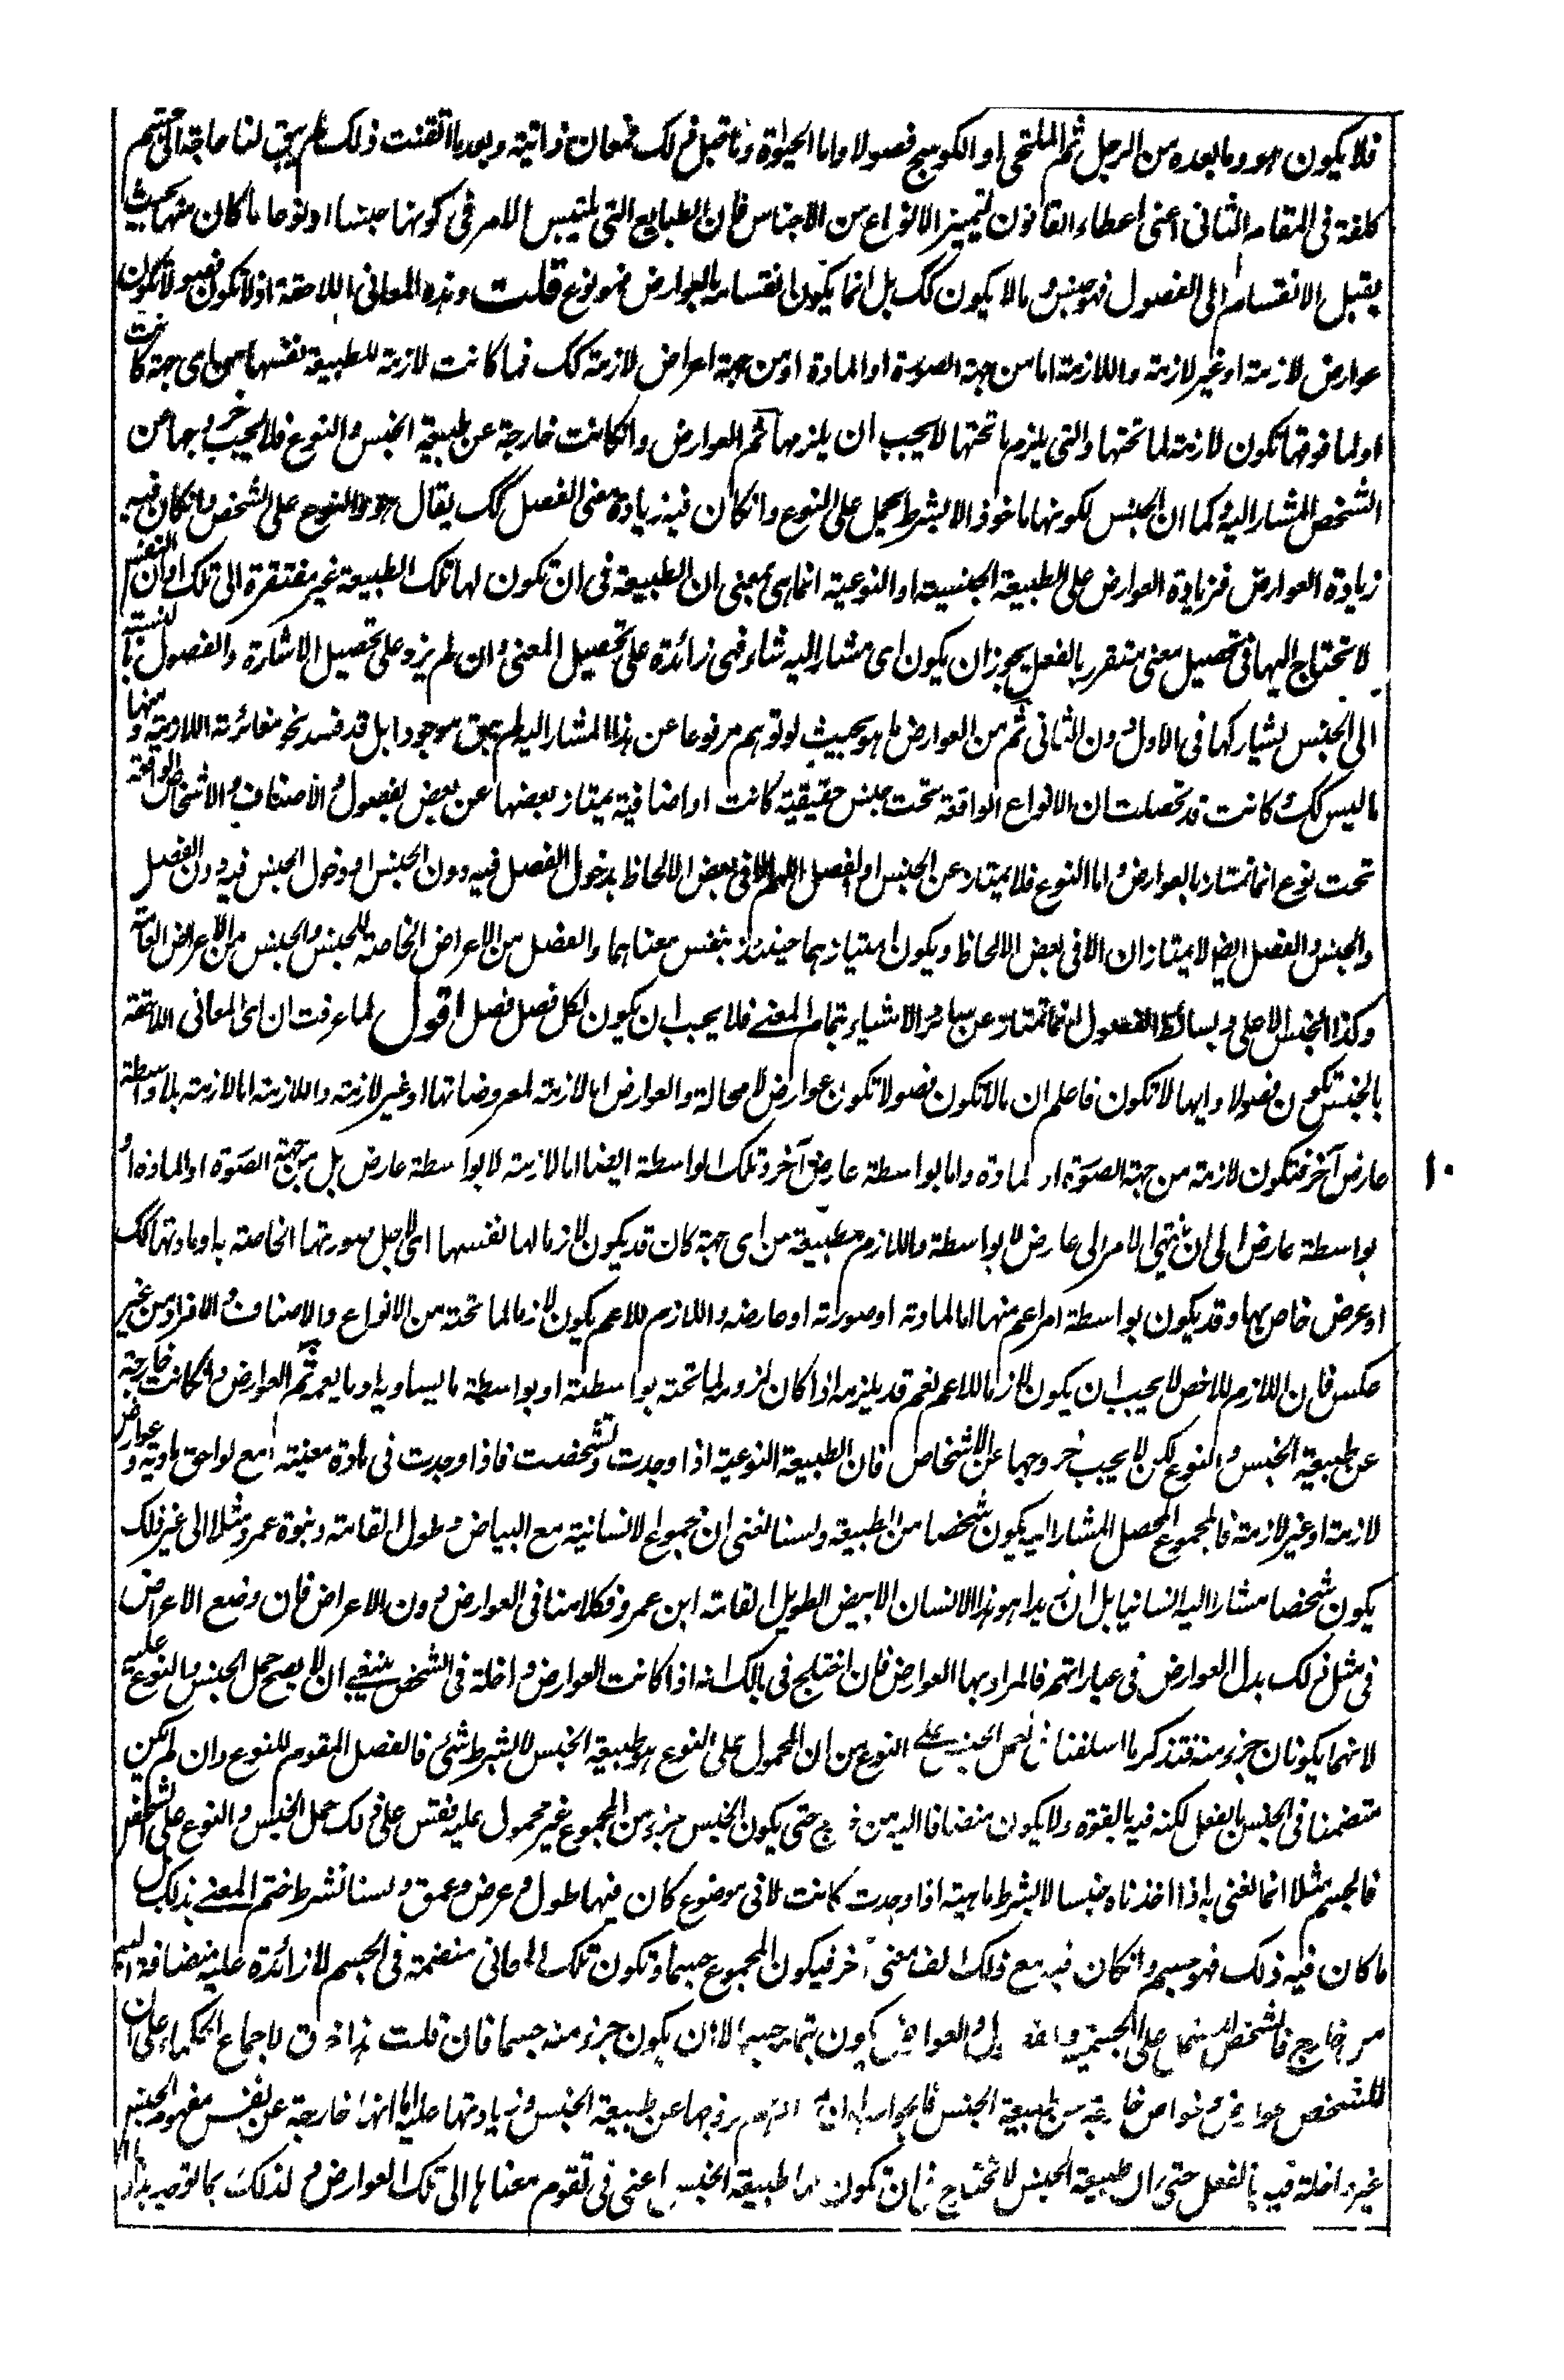 فلا يكون هو وما بعده من الرجل ثم الملتحى او الكوسج فصولا واما الحيوة وما قبل ذلك فمعان ذاتية وبعد ما اتقنت ذلك لم يبق لنا حاجة الى تجشم
كلفة فى المقام الثانى اعنى اعطاء القانون لتمييز الانواع من الاجناس فان الطبايع التى يلتبس الامر فى كونها جنسا او نوعا ما كان منها بحيث
يقبل الانقسام الى الفصول فهو جنس وما لا يكون كك بل انما يكون انقسامه بالعوارض فهو نوع قلت وهذه المعانى اللاحقة اذ لا تكون فصولا تكون
عوارض لازمة او غير لازمة واللازمة اما من جهة الصورة او المادة او من جهة اعراض لازمة كك فما كانت لازمة للطبيعة نفسها من اى جهة كانت
او لما فوقها تكون لازمة لما تحتها والتى يلزم ما تحتها لا يجب ان يلزمها ثم العوارض وان كانت خارجة عن طبيعة الجنس والنوع فلا يجب خروجها عن
الشخص المشار اليه كما ان الجنس لكونها ماخوذ الا بشرط يحمل على النوع وانكان فيه زيادة معنى الفصل كك يقال هو والنوع على الشخص وانكان فيه
زيادة العوارض فزيادة العوارض على الطبيعة الجنسية او النوعية انما هى بمعنى ان الطبيعة فى ان تكون لها تلك الطبيعة غير مفتقرة الى تلك او ان النفس
لا تحتاج اليها فى تحصيل معنى متقرر بالفعل يجوز ان يكون اى مشار اليه شاء فهى زائدة على تحصيل المعنى وان لم يزد على تحصيل الاشارة والفصول بالنسبة
الى الجنس يشاركها فى الاول دون الثانى ثم من العوارض ما هو بحيث لو توهم مرفوعا عن هذا المشار اليه لم يبق موجودا بل قد فسد نحو مغائرته اللازمة ومنها
ما ليس كك وكانت قد تحصلت ان الانواع الواقعة تحت جنس حقيقية كانت او اضافية يمتاز بعضها عن بعض بفصول والاصناف والاشخاص الواقعة
تحت نوع انما تمتاز بالعوارض واما النوع فلا يمتاز عن الجنس او الفصل اللهم الا فى بعض الالحاظ بدخول الفصل فيه دون الجنس او دخول الجنس فيه دون الفصل
والجنس والفصل ايضا لا يمتازان الا فى بعض الالحاظ ويكون امتيازهما حينئذ بنفس معناهما والفصل من الاعراض الخاصة للجنس والجنس من الاعراض العامة
وكذا الجنس الاعلى وبسائط الفصول انما تمتاز عن سائر الاشياء بتمام المعنى فلا يجب ان يكون لكل فصل فصل اقول لما عرفت ان اى المعانى اللاحقة
بالجنس تكون فصولا وايها لا تكون فاعلم ان ما لا تكون فصولا تكون عوارض لا محالة والعوارض اما لازمة لمعروضاتها او غير لازمة واللازمة اما لازمة بلا واسطة
عارض آخر فتكون لازمة من جهة الصورة او المادة واما بواسطة عارض آخر وتلك الواسطة ايضا اما لازمة لا بواسطة عارض بل من جهة الصورة او المادة او
بواسطة عارض الى ان ينتهى الامر الى عارض لا بواسطة واللازم طبيعة من اى جهة كان قد يكون لازما لها لنفسها اى لاجل صورتها الخاصة بها او مادتها كك
او عرض خاص بها وقد يكون بواسطة امر اعم منها اما لمادته او صورته او عارضه واللازم للاعم يكون لازما لما تحته من الانواع والاصناف والافراد من غير
عكس فان اللازم للاخص لا يجب ان يكون لازما للاعم نعم قد يلزمه اذا كان لزومه لما تحته بواسطته او بواسطة ما يساويه او ما يعمه ثم العوارض وان كانت خارجة
عن طبيعة الجنس والنوع لكن لا يجب خروجها عن الاشخاص فان الطبيعة النوعية اذا وجدت وتشخصت فاذا وجدت فى مادة معينة مع لواحق مادية وعوارض
لازمة او غير لازمة فالمجموع المحصل المشار اليه يكون شخصا من الطبيعة ولسنا نعنى ان مجموع الانسانية مع البياض وطول القامة وبنوة عمرو مثلا الى غير ذلك
يكون شخصا مشارا اليه انسانيا بل ان زيدا هو هذا الانسان الابيض الطويل القامة ابن عمرو فكلامنا فى العوارض دون الاعراض فان وضع الاعراض
فى مثل ذلك بدل العوارض فى عباراتهم فالمراد بها العوارض فان اختلج فى بالك انه اذا كانت العوارض داخلة فى الشخص ينبغى ان لا يصح حمل الجنس والنوع عليه
لانهما يكونان جزء منه فتذكر ما اسلفنا فى حمل الجنس على النوع من ان المحمول على النوع هو طبيعة الجنس لا بشرط شئ فالفصل المقوم للنوع وان لم يكن
متضمنا فى الجنس بالفعل لكنه فيه بالقوة ولا يكون منضافا اليه من خارج حتى يكون الجنس جزء من المجموع غير محمول عليه فقس على ذلك حمل الجنس والنوع على الشخص
فالجسم مثلا انما نعنى به اذا اخذناه جنسا لا بشرط ماهية اذا وجدت كانت لا فى موضوع كان فيها طول وعرض وعمق ولسنا نشرط ختم المعنى بذلك بل
ما كان فيه ذلك فهو جسم وانكان فيه مع ذلك الف معنى آخر فيكون المجموع جسما وتكون تلك المعانى منضمة فى الجسم لا زائدة عليه منضافة اليه
من خارج فالشخص على الجسمية والعوارض يكون بتمامه جسما لا ان يكون جزء منه جسما فان قلت هذا خرق لاجماع الحكماء على ان
للشخص عوارض وخواص خارجة من طبيعة الجنس فالجواب خروجها عن طبيعة الجنس وزيادتها عليه انها خارجة عن نفس مفهوم الجنس
غير داخلة فيه بالفعل حتى ان طبيعة الجنس لا تحتاج فى ان تكون لها طبيعة الجنس اعنى فى تقوم معناها الى تلك العوارض ولذلك
١٠